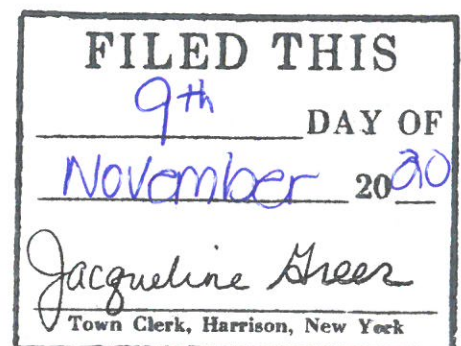 FILED THIS
9th DAY OF
November 2020
Jacqueline Greer
Town Clerk, Harrison, New York